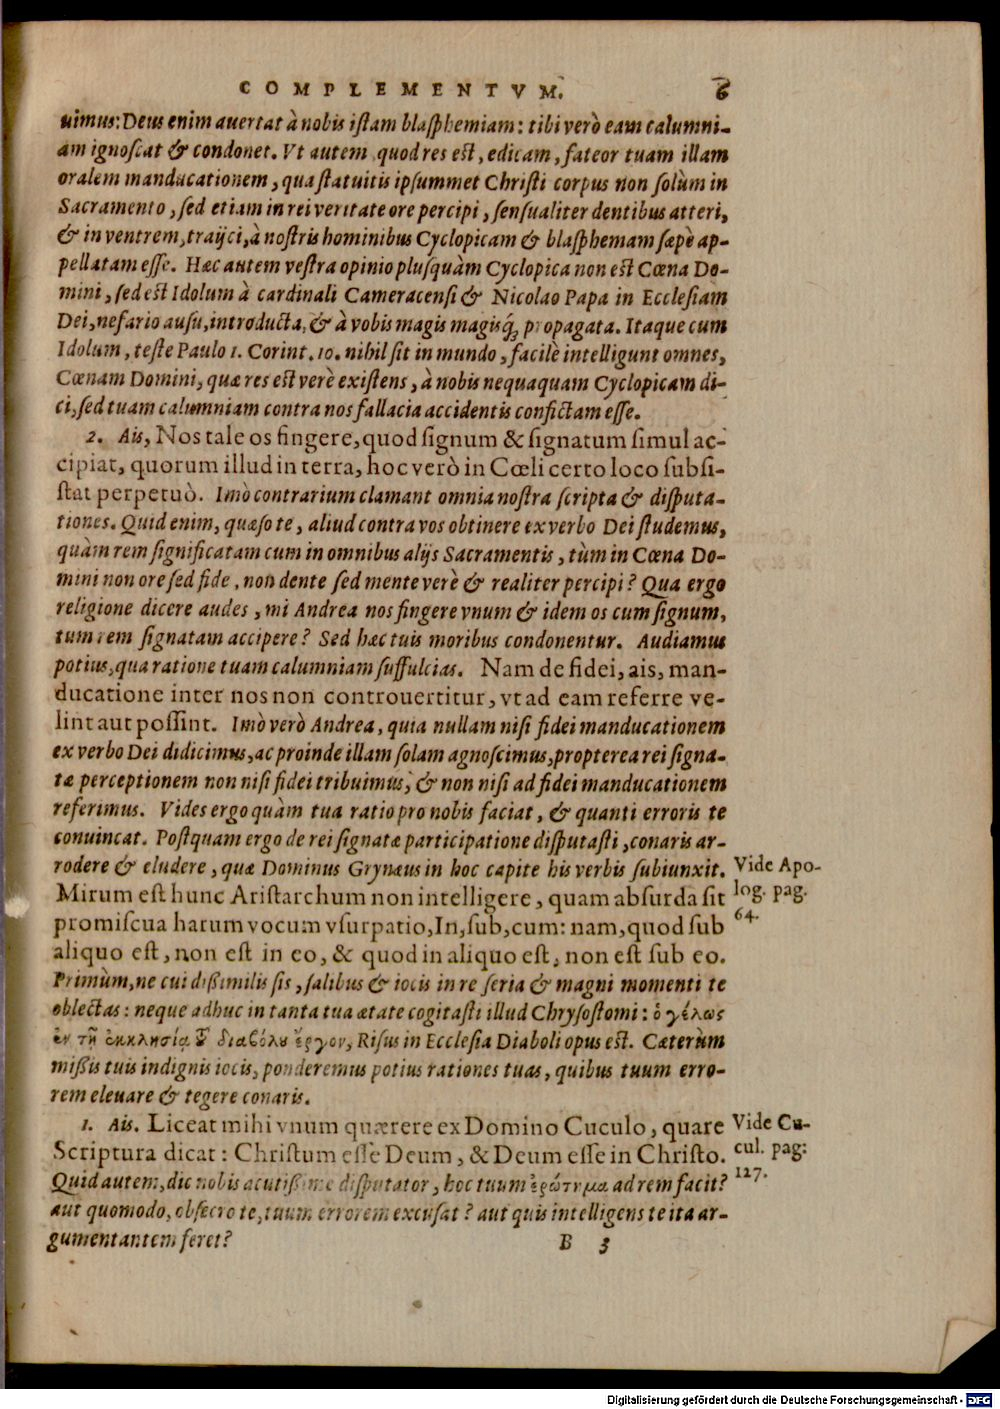 COMPLEMENTVM. 6
uimus: Deus enim auertat à nobis istam blasphemiam: tibi verò eam calumni-
am ignoscat & condonet. Vt autem quod res est, edicam, fateor tuam illam
oralem manducationem, qua statuitis ipsummet Christi corpus non solùm in
Sacramento, sed etiam in rei veritate ore percipi, sensualiter dentibus atteri,
& in ventrem, traijci, à nostris hominibus Cyclopicam & blasphemam sæpè ap-
pellatam esse. Hæc autem vestra opinio plusquàm Cyclopica non est Cœna Do-
mini, sed est Idolum à cardinali Cameracensi & Nicolao Papa in Ecclesiam
Dei, nefario ausu, introducta, & à vobis magis magisq́; propagata. Itaque cum
Idolum, teste Paulo 1. Corint. 10. nihil sit in mundo, facilè intelligunt omnes,
Cœnam Domini, quæ res est verè existens, à nobis nequaquam Cyclopicam di-
ci, sed tuam calumniam contra nos fallacia accidentis confictam esse.
2. Ais, Nos tale os fingere, quod signum & signatum simul ac-
cipiat, quorum illud in terra, hoc verò in Cœli certo loco subsi-
stat perpetuò. Imò contrarium clamant omnia nostra scripta & disputa-
tiones. Quid enim, quæso te, aliud contra vos obtinere ex verbo Dei studemus,
quàm rem significatam cum in omnibus alijs Sacramentis, tùm in Cœna Do-
mini non ore sed fide, non dente sed mente verè & realiter percipi? Qua ergo
religione dicere audes, mi Andrea nos fingere vnum & idem os cum signum,
tum rem signatam accipere? Sed hæc tuis moribus condonentur. Audiamus
potius, qua ratione tuam calumniam suffulcias. Nam de fidei, ais, man-
ducatione inter nos non controuertitur, vt ad eam referre ve-
lint aut possint. Imò verò Andrea, quia nullam nisi fidei manducationem
ex verbo Dei didicimus, ac proinde illam solam agnoscimus, propterea rei signa-
tæ perceptionem non nisi fidei tribuimus, & non nisi ad fidei manducationem
referimus. Vides ergo quàm tua ratio pro nobis faciat, & quanti erroris te
conuincat. Postquam ergo de rei signatæ participatione disputasti, conaris ar-
rodere & eludere, quæ Dominus Grynæus in hoc capite his verbis subiunxit.
Vide Apo-
log. pag.
64.
Mirum est hunc Aristarchum non intelligere, quam absurda sit
promiscua harum vocum vsurpatio, In, sub, cum: nam, quod sub
aliquo est, non est in eo, & quod in aliquo est, non est sub eo.
Primùm, ne cui dißimilis sis, salibus & iocis in re seria & magni momenti te
oblectas: neque adhuc in tanta tua ætate cogitasti illud Chrysostomi: ὁ γέλως
ἐν τῇ ἐκκλησίᾳ τοῦ διαβόλου ἔργον, Risus in Ecclesia Diaboli opus est. Cæterùm
mißis tuis indignis iocis, ponderemus potius rationes tuas, quibus tuum erro-
rem eleuare & tegere conaris.
1. Ais. Liceat mihi vnum quærere ex Domino Cuculo, quare
Vide Cu-
cul. pag:
127.
Scriptura dicat: Christum esse Deum, & Deum esse in Christo.
Quid autem, dic nobis acutißime disputator, hoc tuum ἐρώτημα ad rem facit?
aut quomodo, obsecro te, tuum errorem excusat? aut quis intelligens te ita ar-
gumentantem feret?
B 3
Digitalisierung gefördert durch die Deutsche Forschungsgemeinschaft - DFG